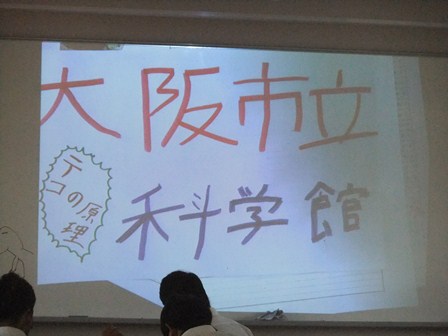 大阪市立
科学館
テコの原理